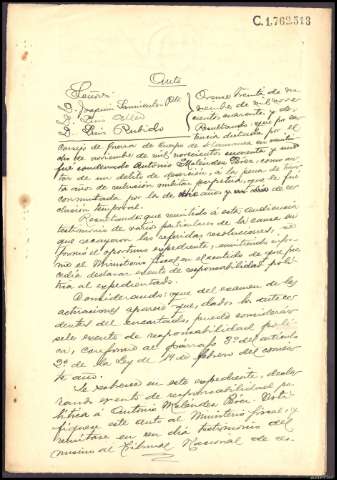 C.1.762313
Auto
Señores
D. Joaquin
D. Luis
D. Luis Rubido
Orense treinta de no
viembre de mil nove
cientos cuarenta, y de
Resultando: que por sen
tencia dictada por el
Consejo de Guerra de Cuerpo de en veinti
dos de noviembre de mil novecientos cuarenta y
fue condenado Antonio Meléndez Pérez, como au
tor de un delito de oposición, a la pena de trein
ta años de reclusión militar perpetua, que le fue
conmutada por la de años y un dia de re
clusión temporal.
Resultando: que remitido a esta Audiencia
testimonio de varios particulares de la causa en
que recayeron las referidas resoluciones, se
formó el oportuno expediente, emitiendo infor
me el Ministerio fiscal en el sentido de que pro
cedia declarar exento de responsabilidad polí
tica al expedientado.
Considerando: que del examen de las
actuaciones aparece que, dados los antece
dentes del encartado, puede considerár
sele exento de responsabilidad políti
ca, conforme al párrafo 3º del artículo
2º de la Ley de 19 de febrero del corrien
te año.
Se sobresee en este expediente, decla
rando exento de responsabilidad po
lítica á Antonio Meléndez Pérez. Noti
fíquese este auto al Ministerio fiscal, y
remítase en su día testimonio del
mismo al Tribunal Nacional de